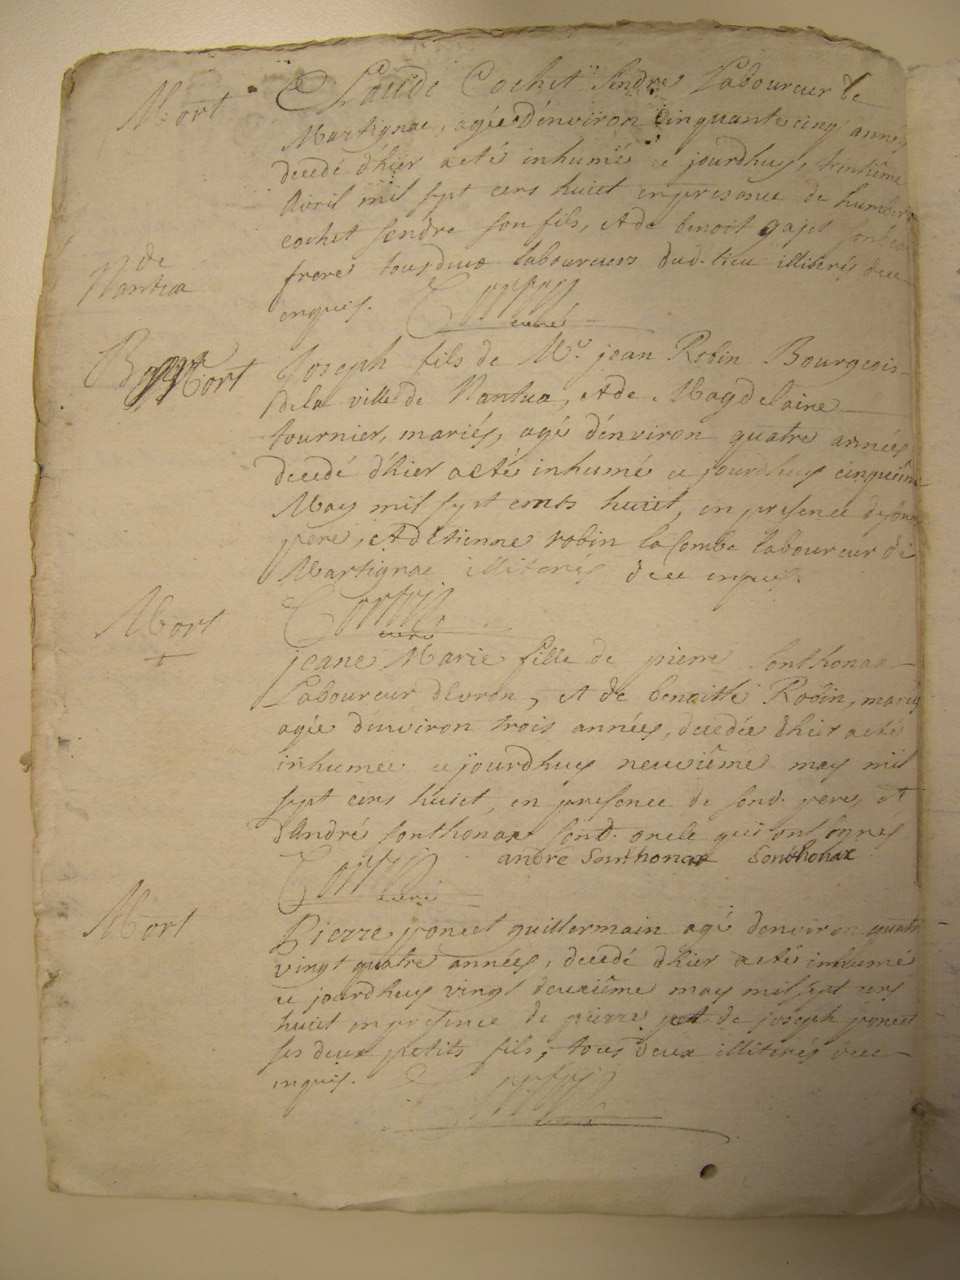 Mort
Claude Cochet Sendre Laboureur de
Martignac, agée d'environ cinquante cinq annees
decedé d'hier acté inhumé ce jourdhuy, trentiême
Avril mil sept cens huict en presence de humbert
cochet sendre son fils, et de benoit gajet son beau
frere tous deux laboureurs dud. lieu illiterés de ce
enquis.
curé
de
Nantua
Mort
Joseph fils de Mr. jean Robin Bourgeois
de la ville de Nantua, et de Magdelaine
tournier, mariés, agé d'environ quatre années
decedé d'hier acté inhumé ce jourdhuy cinquiême
May mil sept cents huict, en presence de son
pere, et d'Etienne robin la Combe laboureur de
Martignac illiterés de ce enquis.
curé
Mort
jeane Marie fille de pierre Sonthonax
Laboureur d'Evron, et de benoitte Robin, mariés
agée d'environ trois années, decedée d'hier acté
inhumée ce jourdhuy neuviême may mil
sept cens huict, en presence de sond. pere, et
d'André Sonthonax sond. oncle qui ont signés
andre Sonthonax Sonthonax
curé
Mort
Pierre poncet guillermain agé d'environ quatre
vingt quatre années, decedé d'hier acté inhumé
ce jourdhuy vingt deuxiême may mil sept cens
huict en presence de pierre et de joseph poncet
ses deux petits fils, tous deux illiterés de ce
enquis.